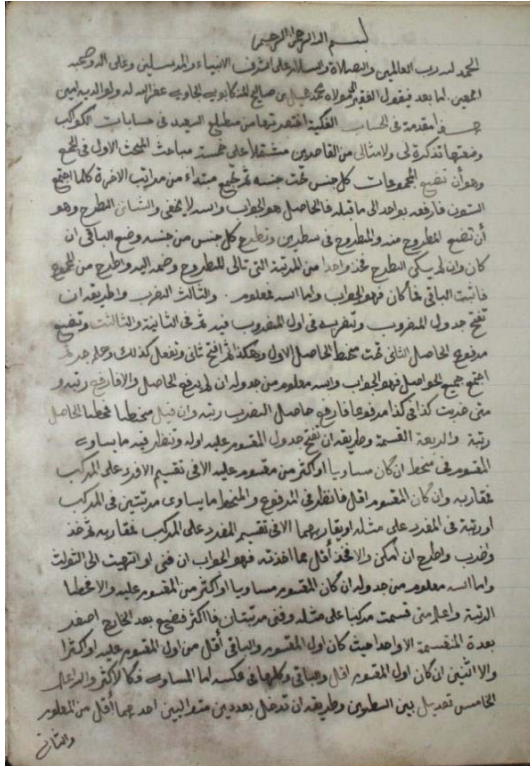 بسم الله الرحمن الرحيم
الحمد لله رب العالمين والصلاة والسلام على اشرف الانبياء والمرسلين وعلى اله وصحبه
اجمعين اما بعد فيقول الفقير لمولاه محمد بن صالح غفر الله له ولوالديه امين
مقدمة في الحساب الفلكية اختصرتها من مطلع السعيد في حسابات الكواكب
وضعتها تذكرة لي ولامثالي من القاصدين مشتملا على خمسة مباحث المبحث الاول في الجمع
وهو أن تضع المجموعات كل جنس تحت جنسه ثم تجمع مبتدءا من مراتب الاخرة كلما اجتمع
الستون فارفعه بواحد الى ما قبله فالحاصل هو الجواب واسه لا يخفى والثاني الطرح وهو
أن تضع المطروح منه والمطروح في سطرين وتطرح كل جنس من جنسه وضع الباقي ان
كان وان لم يمكن الطرح فخذ واحدا من المرتبة التي تالى للمطروح وضمه اليه واطرح من المجموع
فاثبت الباقي فما كان فهو الجواب واما اسه فمعلوم والثالث الضرب وطريقه ان
تفتح جدول المضروب وتضربه في اول المضروب فيه ثم في الثانية والثالثة وتضع
مرفوع الحاصل الثاني تحت منحط الحاصل الاول وهكذا ثم افتح ثاني وتفعل كذلك وهلم جرا ثم
اجمع جميع الحواصل فهو الجواب واسه معلوم من جدوله ان لم يرفع الحاصل والا فارفع رتبة و
متى ضربت كذا في كذا مرفوعا فارفع حاصل الضرب رتبة وان قيل منحطا فحط الحاصل
رتبة والرابعة القسمة وطريقه ان تفتح جدول المقسوم عليه اوله وتنظر فيه ما يساوي
المقسوم في منحط ان كان مساويا او اكثر من مقسوم عليه الا في تقسيم المفرد على المركب
فمقاربه وان كان المقسوم اقل فانظر في المرفوع والمنحط ما يساوى مرتبتين في المركب
او رتبة في المفرد على مثله او يقاربهما الا في تقسيم المفرد على المركب فمقاربه ثم خذ
واضرب واطرح ان امكن والا فخذ أقل مما اخذته فهو الجواب ان فنى او انتهيت الى الثوالث
واما اسه معلوم من جدوله ان كان المقسوم مساويا او اكثر من المقسوم عليه والا فحطا
الرتبة واعلم متى قسمت مركبا على مثله وفنى مرتبتان فاكثر فضع بعد الخارج اصفر
بعدة المنقسمة الا واحدا حيث كان اول المقسوم والباقي أقل من اول المقسوم عليه او اكثرا
والا اثنين ان كان اول المقسوم اقل والباقي فعكسه اما المساوي فكالاكثر والله اعلم
الخامس تعديل بين السطرين وطريقه ان تدخل بعددين متواليين احدهما أقل من المعلوم
والثاني